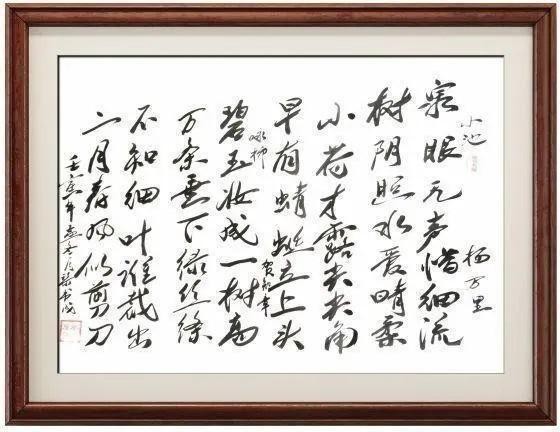 小池
杨万里
泉眼无声惜细流
树阴照水爱晴柔
小荷才露尖尖角
早有蜻蜓立上头
咏柳
贺知章
碧玉妆成一树高
万条垂下绿丝绦
不知细叶谁裁出
二月春风似剪刀
壬寅年